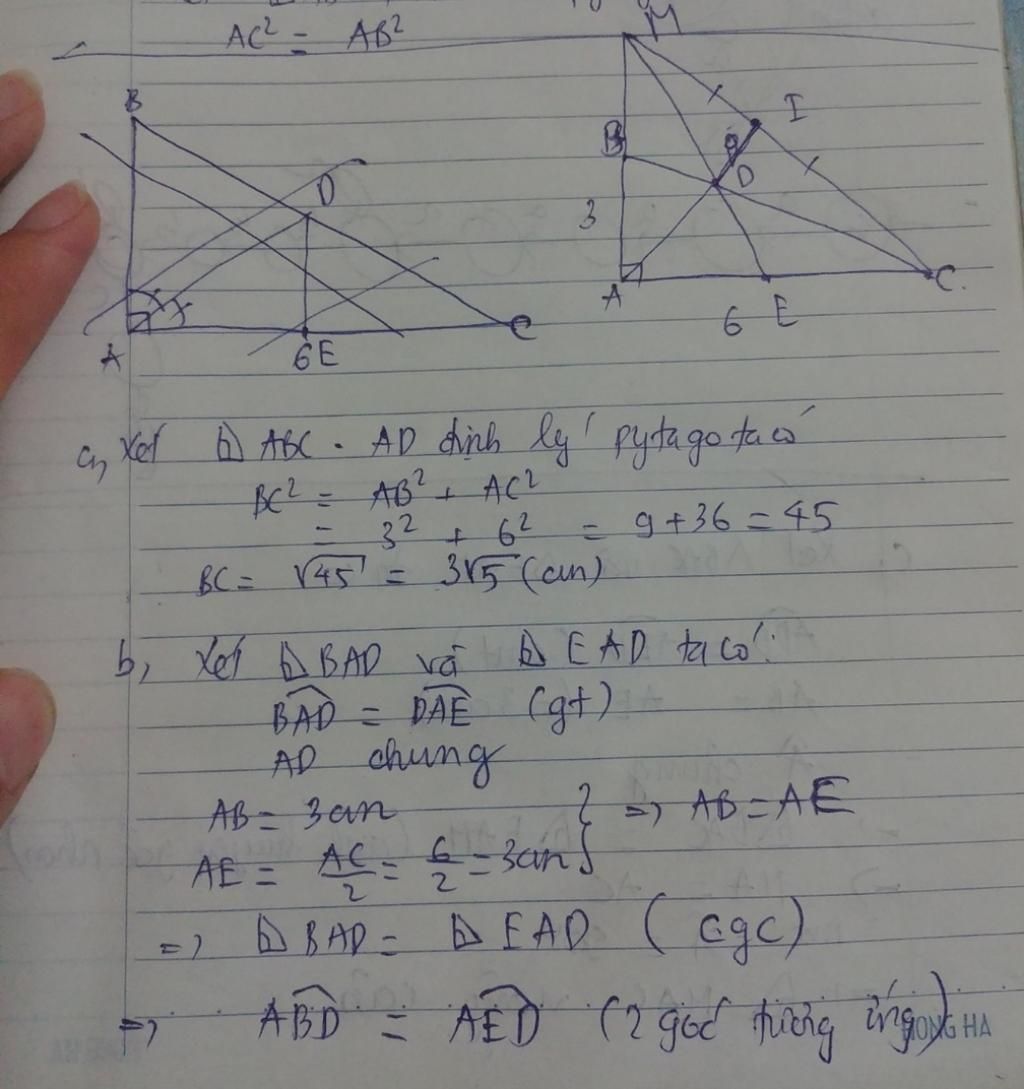 AC² = AB²
M
B
I
D
B
g
D
3
A
C
A
6E
C
6 E
a, Xét ⊿ ABC . AD định lý pytago ta có
BC² = AB² + AC²
= 3² + 6² = 9 + 36 = 45
BC = √45 = 3√5 (cm)
b, Xét ⊿ BAD và ⊿ EAD ta có:
BAD = DAE (gt)
AD chung
AB = 3cm } => AB = AE
AE = AC/2 = 6/2 = 3cm
=> ⊿ BAD = ⊿ EAD (cgc)
=> ABD = AED (2 góc tương ứng)
HONG HA